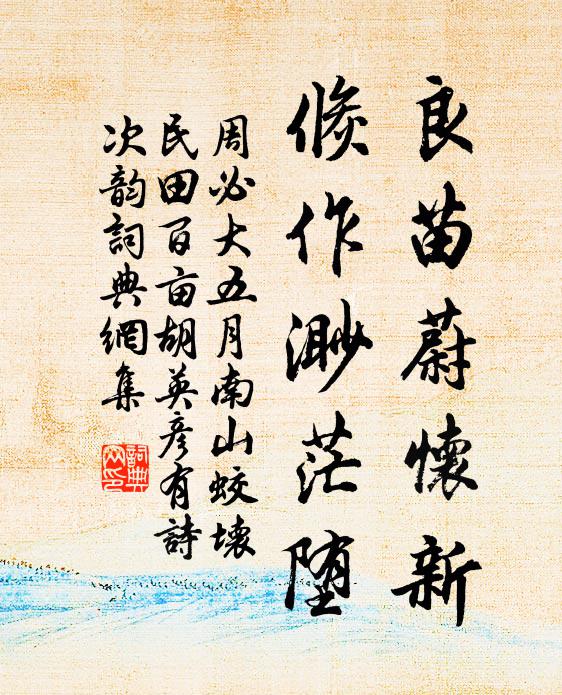 良苗蔚懷新
倐作渺茫堕
周必大五月南山蛟壊
民田百亩胡英彦有詩
次韵詞典網集
詞典
网印